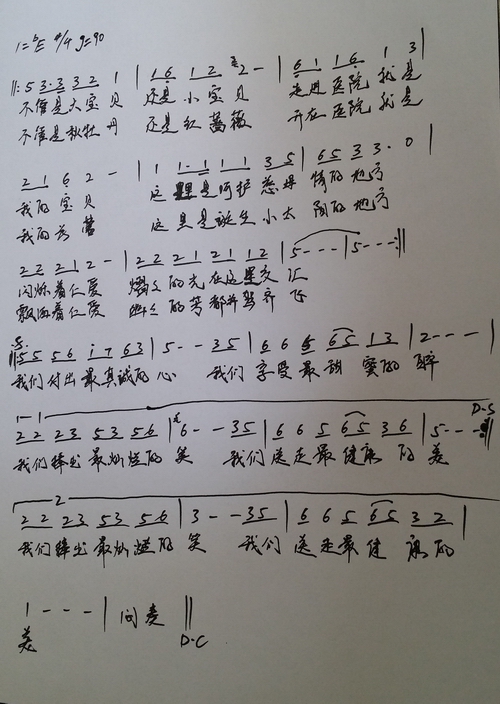 1=ᵇE 4/4 ♩=90
‖: 5 3·3 3 2 1 | 1 6 1 2 2 - | 6 1 1 6 1 3 |
不僅是大宝贝 还是小宝贝 走进医院我是
不僅是秋牡丹 还是红蔷薇 开在医院我是
2 1 6 2 - | 1 1·1 1 1 3 5 | 6 5 3 3· 0 |
我的宝贝 这里是呵护 的地方
我的 这里是诞生小太阳的地方
2 2 2 1 2 - | 2 2 2 1 2 1 1 2 | 5 - - - | 5 - - - :‖
闪烁着仁爱 的光在这里交汇
飘洒着仁爱 的芳都并驾齐飞
‖: 5 5 5 6 i 7 6 3 | 5 - - 3 5 | 6 6 5 6 5 1 3 | 2 - - - |
我们付出最真誠的心 我们享受最甜蜜的醉
1-1
D-S
2 2 2 3 5 3 5 6 | 6 - - 3 5 | 6 6 5 6 5 3 6 | 5 - - - :‖
我们捧出最灿烂的笑 我们送走最健康的美
2
2 2 2 3 5 3 5 6 | 3 - - 3 5 | 6 6 5 6 5 3 2 |
我们捧出最灿烂的笑 我们送走最健康的
1 - - - | 间奏 ‖
美 D·C